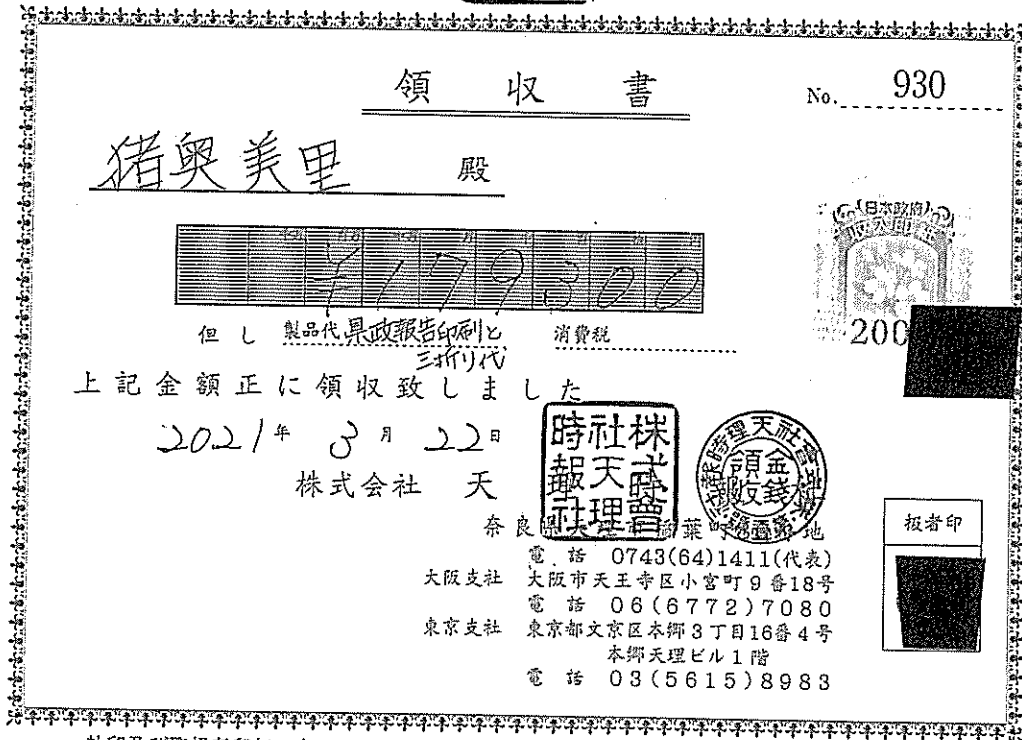 領収書
No. 930
猪奥美里 殿
¥179300
但し 製品代 県政報告印刷と 消費税
三折り代
上記金額正に領収致しました
2021年 3月 22日
株式会社 天
株式會社天理時報社
金錢領收
日本政府
収入印紙
200
奈良県
電話 0743(64)1411(代表)
大阪支社 大阪市天王寺区小宮町9番18号
電話 06(6772)7080
東京支社 東京都文京区本郷3丁目16番4号
本郷天理ビル1階
電話 03(5615)8983
扱者印